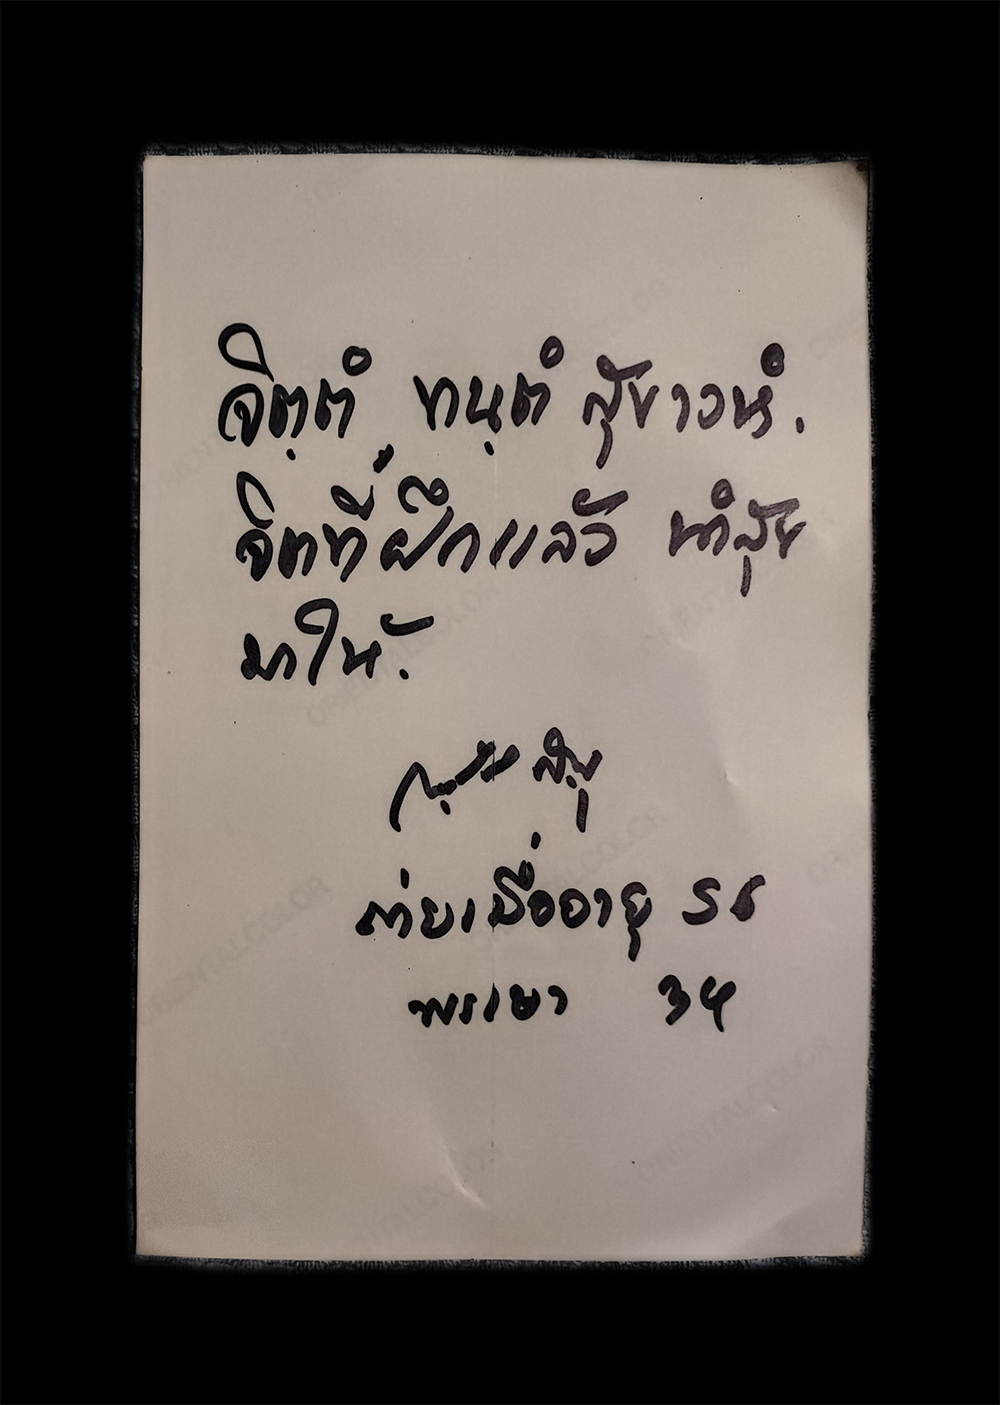 จิตฺตํ ทนฺตํ สุขาวหํ.
จิตที่ฝึกแล้ว นำสุข
มาให้.
ถ่ายเมื่ออายุ
พรรษา 34
ORIENTALCOLOR